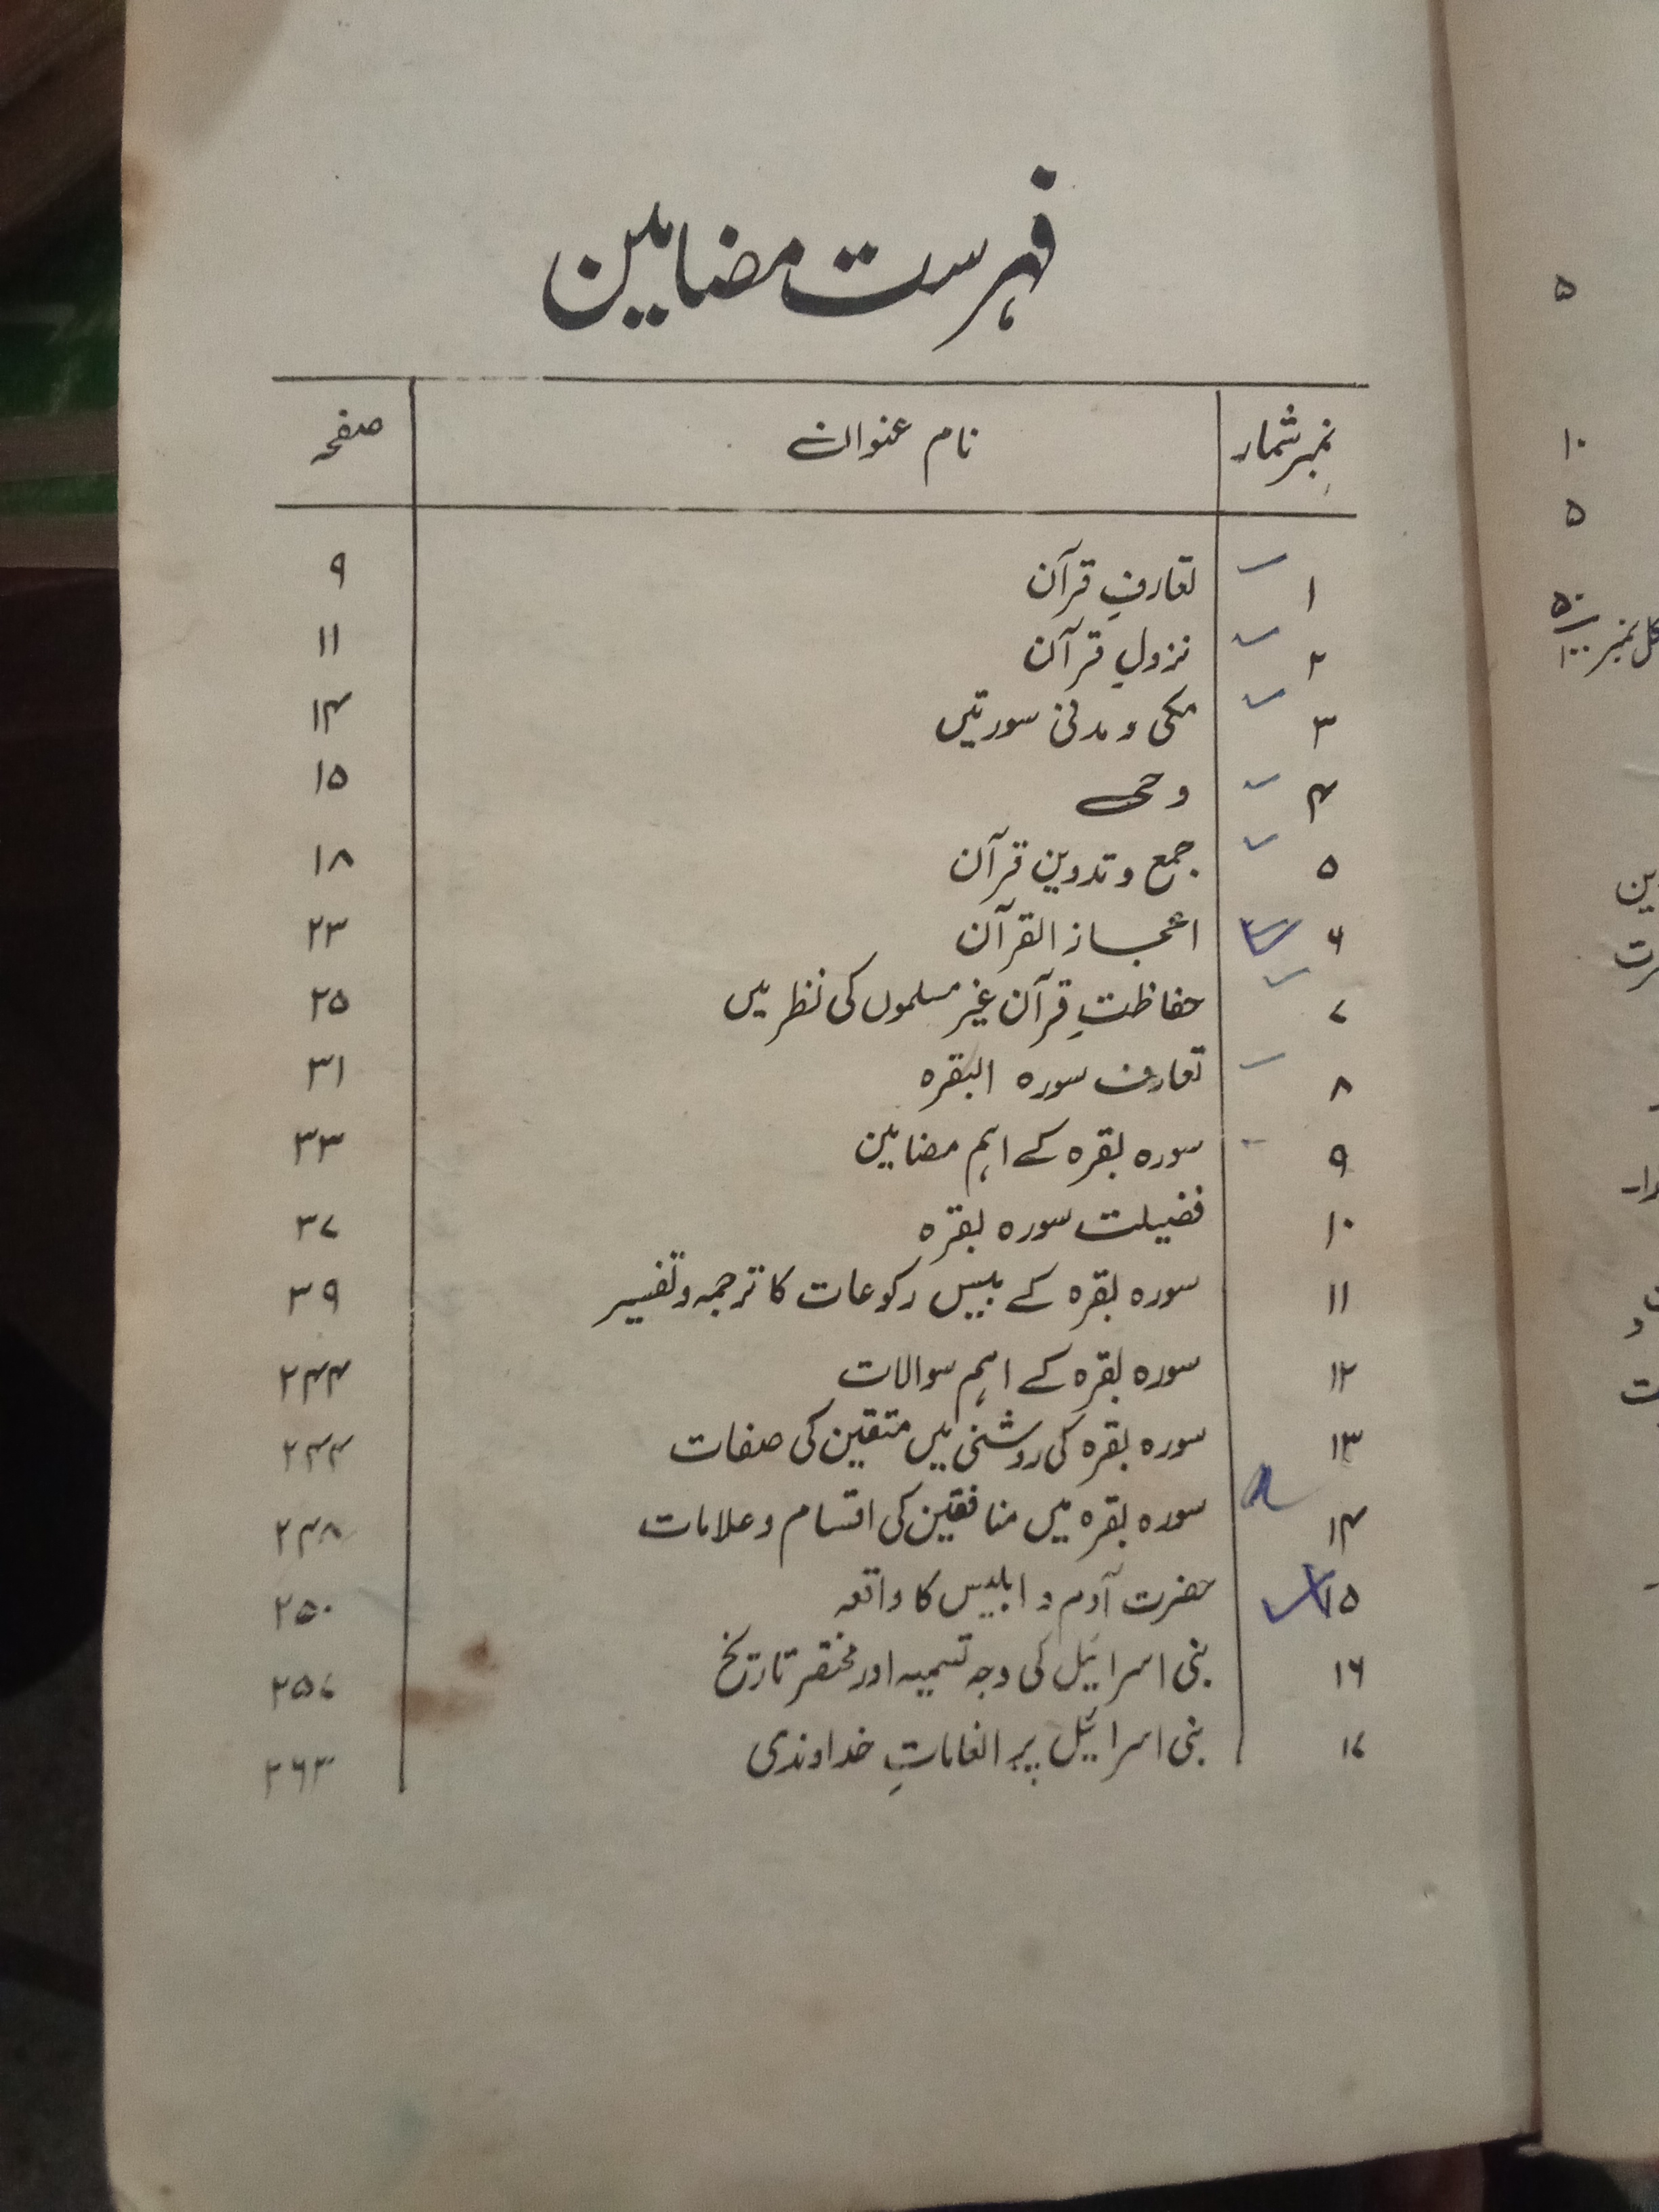 فہرست مضامین
نمبر شمار نام عنوان صفحہ
۱ تعارفِ قرآن ۹
۲ نزولِ قرآن ۱۱
۳ مکی و مدنی سورتیں ۱۴
۴ وحی ۱۵
۵ جمع و تدوینِ قرآن ۱۸
۶ اعجاز القرآن ۲۳
۷ حفاظتِ قرآن غیر مسلموں کی نظر میں ۲۵
۸ تعارف سورہ البقرہ ۳۱
۹ سورہ بقرہ کے اہم مضامین ۳۳
۱۰ فضیلت سورہ بقرہ ۳۷
۱۱ سورہ بقرہ کے بیس رکوعات کا ترجمہ و تفسیر ۳۹
۱۲ سورہ بقرہ کے اہم سوالات ۲۴۴
۱۳ سورہ بقرہ کی روشنی میں متقین کی صفات ۲۴۴
۱۴ سورہ بقرہ میں منافقین کی اقسام و علامات ۲۴۸
۱۵ حضرت آدم و ابلیس کا واقعہ ۲۵۰
۱۶ بنی اسرائیل کی وجہ تسمیہ اور مختصر تاریخ ۲۵۷
۱۷ بنی اسرائیل پر انعاماتِ خداوندی ۲۶۳
۵
۱۰
۵
کل نمبر ۵۰/۱۰۰